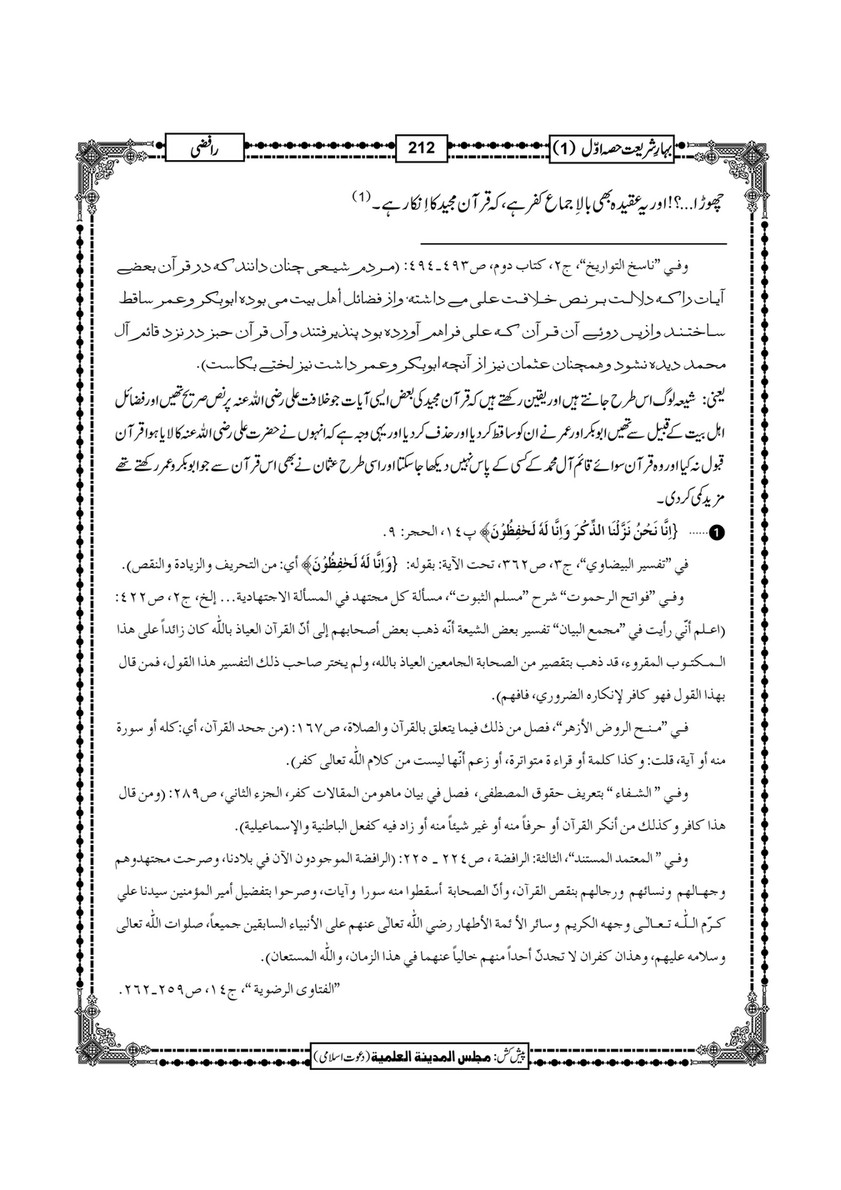 بہارِشریعت حصہ اوّل (1)
212
رافضی
چھوڑا...؟! اور یہ عقیدہ بھی بالاِجماع کفر ہے، کہ قرآن مجید کا اِنکار ہے۔ (1)
وفي ”ناسخ التواريخ“، ج۲، کتاب دوم، ص۴۹۳۔۴۹٤: (مردم شیعی چنان دانند که در قرآن بعضے
آیات را که دلالت بر نص خلافت علی مے داشته، واز فضائل أهل بیت می بوده ابوبکر وعمر ساقط
ساختند وازیں روئے آن قرآن که علی فراهم آورده بود پنذیرفتند وآں قرآن حبز در نزد قائم آل
محمد دیده نشود وهمچنان عثمان نیز از آنچه ابوبکر وعمر داشت نیز لختے بکاست).
یعنی: شیعہ لوگ اس طرح جانتے ہیں اور یقین رکھتے ہیں کہ قرآن مجید کی بعض ایسی آیات جو خلافت علی رضی اللہ عنہ پر نص صریح تھیں اور فضائل
اہل بیت کے قبیل سے تھیں ابوبکر اور عمر نے ان کو ساقط کر دیا اور حذف کر دیا اور یہی وجہ ہے کہ انہوں نے حضرت علی رضی اللہ عنہ کا لایا ہوا قرآن
قبول نہ کیا اور وہ قرآن سوائے قائم آل محمد کے کسی کے پاس نہیں دیکھا جاسکتا اور اسی طرح عثمان نے بھی اس قرآن سے جو ابوبکر و عمر رکھتے تھے
مزید کمی کر دی۔
1...... ﴿اِنَّا نَحْنُ نَزَّلْنَا الذِّكْرَ وَاِنَّا لَهٗ لَحٰفِظُوْنَ﴾ پ١٤، الحجر: ٩.
في ”تفسير البيضاوي“، ج۳، ص٣٦٢، تحت الآية: بقوله: ﴿وَاِنَّا لَهٗ لَحٰفِظُوْنَ﴾ أي: من التحريف والزيادة والنقص).
وفي ”فواتح الرحموت“ شرح ”مسلم الثبوت“، مسألة كل مجتهد في المسألة الاجتهادية... إلخ، ج۲، ص٤٢٢:
(اعلم أنّي رأيت في ”مجمع البيان“ تفسير بعض الشيعة أنّه ذهب بعض أصحابهم إلى أنّ القرآن العياذ باللّٰه كان زائداً على هذا
المكتوب المقروء، قد ذهب بتقصير من الصحابة الجامعين العياذ بالله، ولم يختر صاحب ذلك التفسير هذا القول، فمن قال
بهذا القول فهو كافر لإنكاره الضروري، فافهم).
في ”منح الروض الأزهر“، فصل من ذلك فيما يتعلق بالقرآن والصلاة، ص١٦٧: (من جحد القرآن، أي: كله أو سورة
منه أو آية، قلت: وكذا كلمة أو قراءة متواترة، أو زعم أنّها ليست من كلام اللّٰه تعالى كفر).
وفي ” الشفاء “ بتعريف حقوق المصطفى، فصل في بيان ماهو من المقالات كفر، الجزء الثاني، ص٢٨٩: (ومن قال
هذا كافر وكذلك من أنكر القرآن أو حرفاً منه أو غير شيئاً منه أو زاد فيه كفعل الباطنية والإسماعيلية).
وفي ” المعتمد المستند“، الثالثة: الرافضة ، ص٢٢٤ ـ ٢٢٥: (الرافضة الموجودون الآن في بلادنا، وصرحت مجتهدوهم
وجهالهم ونسائهم ورجالهم بنقص القرآن، وأنّ الصحابة أسقطوا منه سورا وآيات، وصرحوا بتفضيل أمير المؤمنين سيدنا علي
كرّم اللّٰه تعالٰى وجهه الكريم وسائر الأئمة الأطهار رضي اللّٰه تعالى عنهم على الأنبياء السابقين جميعاً، صلوات اللّٰه تعالى
وسلامه عليهم، وهذان كفران لا تجدنّ أحداً منهم خالياً عنهما في هذا الزمان، واللّٰه المستعان).
”الفتاوى الرضوية “، ج١٤، ص٢٥٩-٢٦٢.
پیش کش: مجلس المدینة العلمیة (دعوت اسلامی)